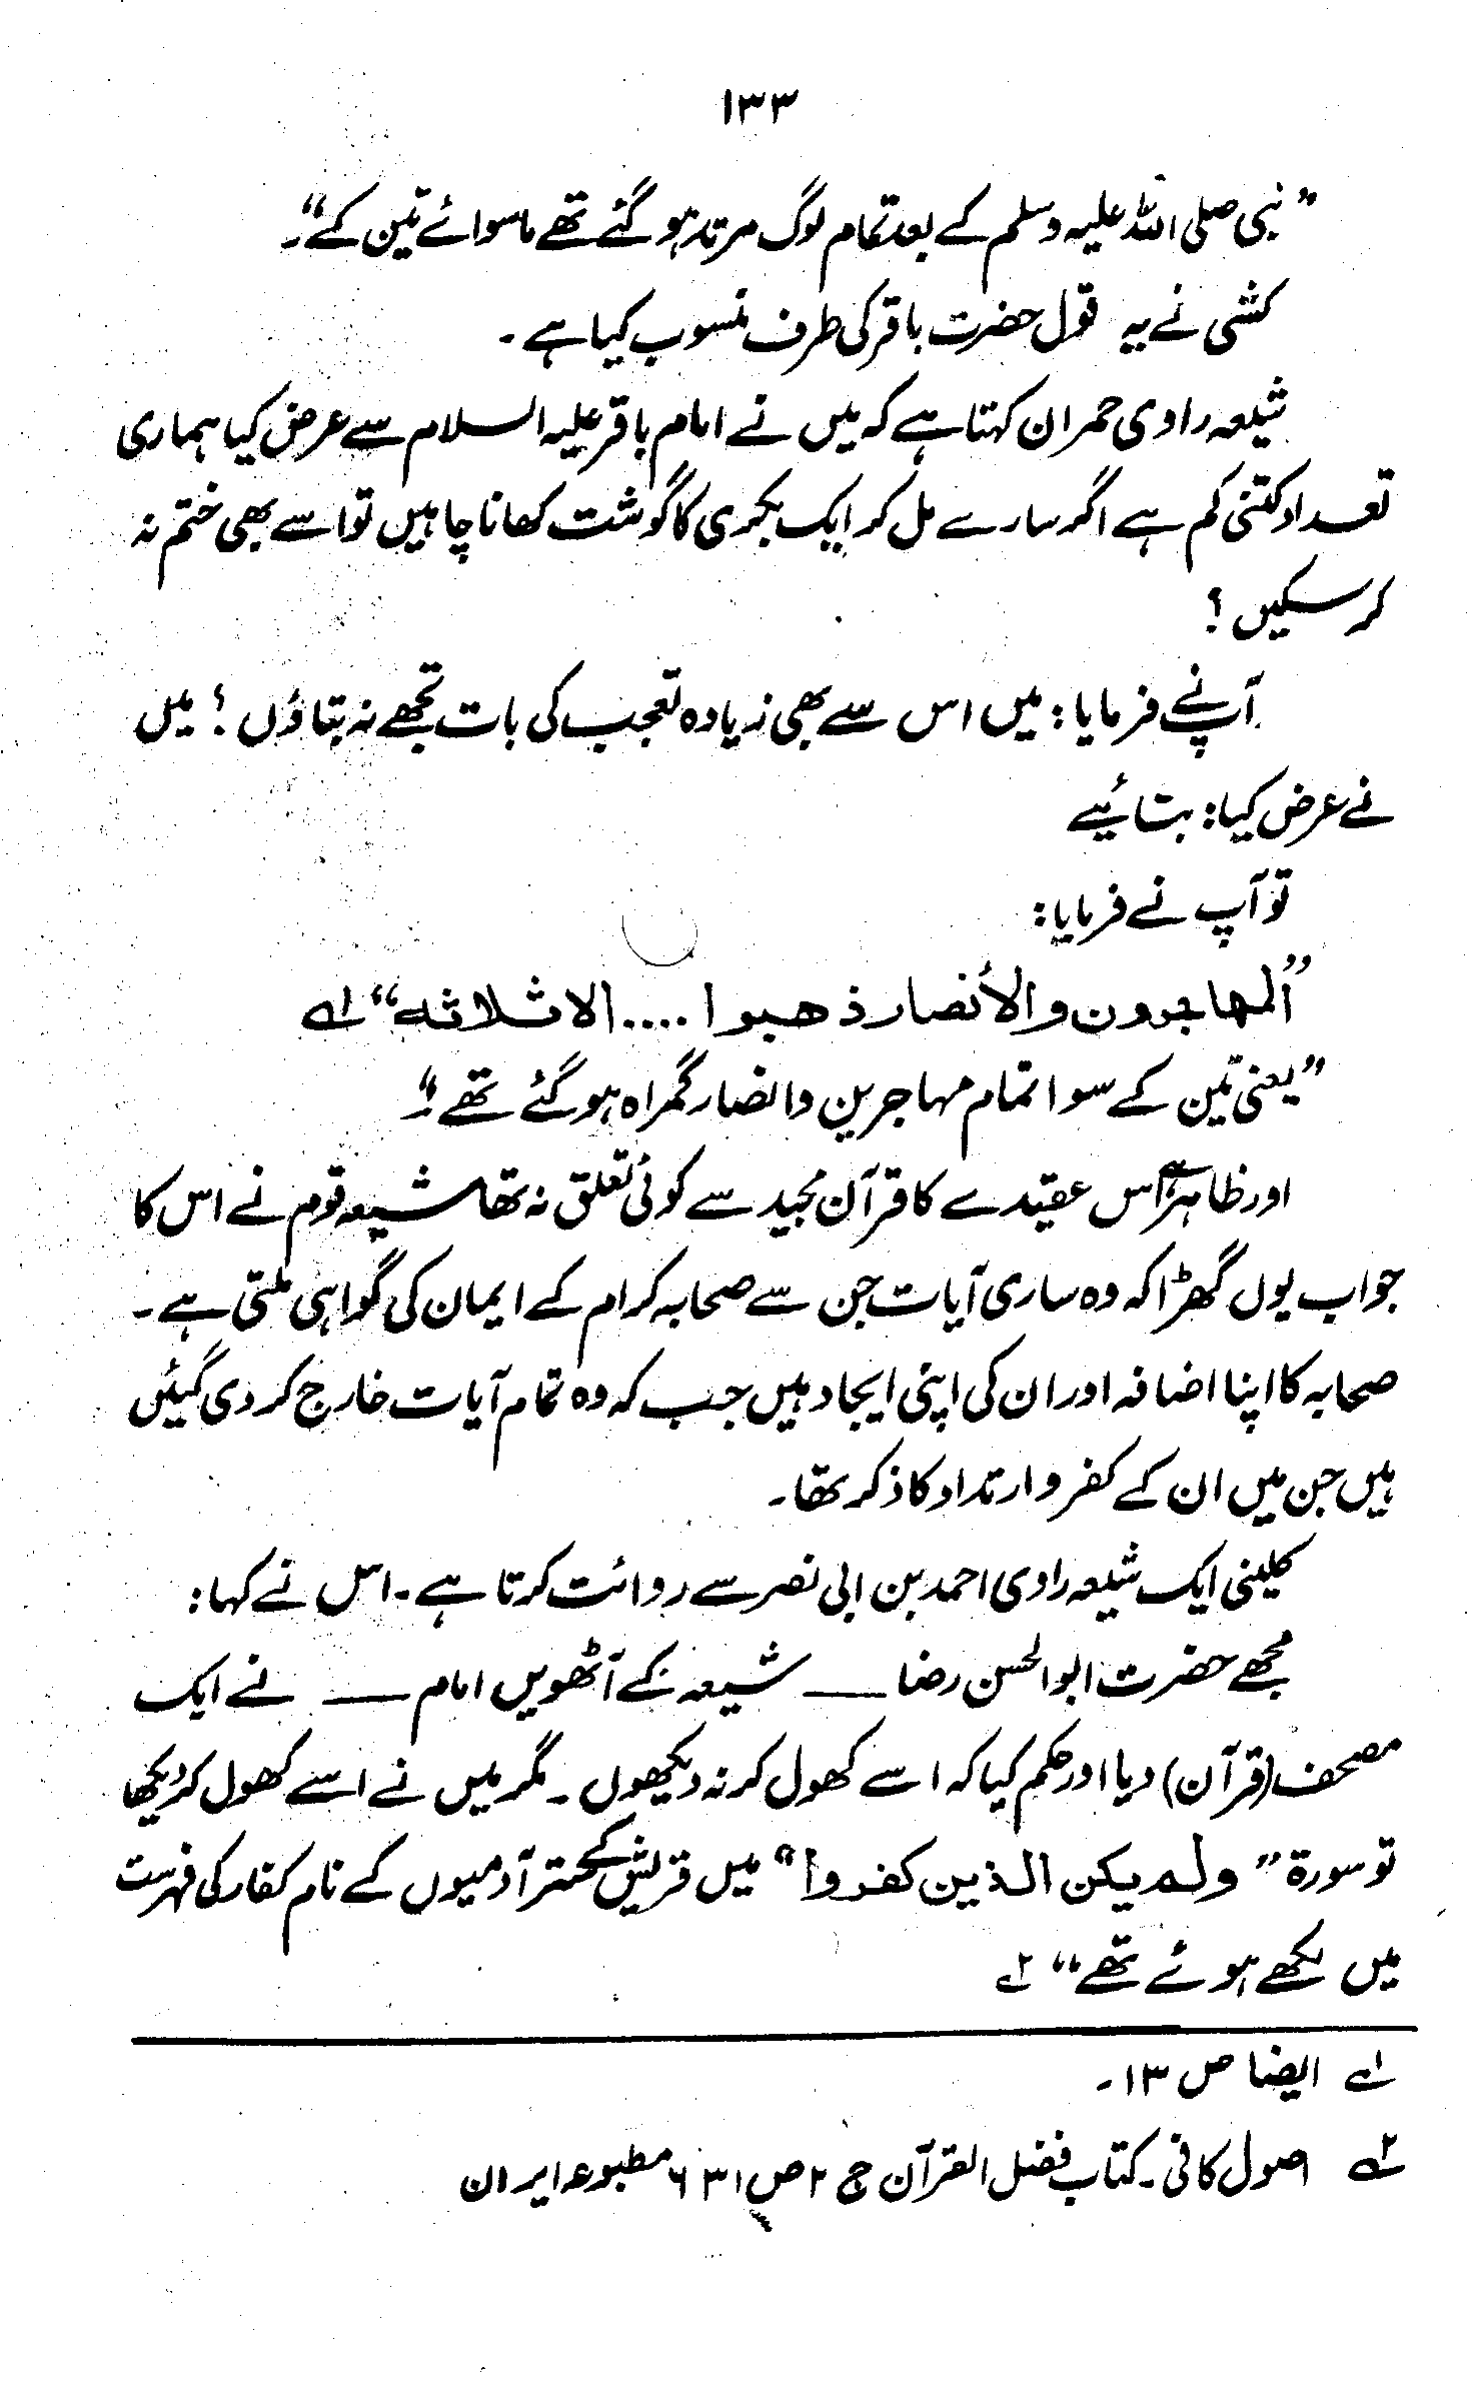 ۱۳۳
”نبی صلی اللہ علیہ وسلم کے بعد تمام لوگ مرتد ہو گئے تھے ماسوائے تین کے“۔
کشی نے یہ قول حضرت باقر کی طرف منسوب کیا ہے۔
شیعہ راوی حمران کہتا ہے کہ میں نے امام باقر علیہ السلام سے عرض کیا ہماری
تعداد کتنی کم ہے اگر سارے مل کر ایک بکری کا گوشت کھانا چاہیں تو اسے بھی ختم نہ
کر سکیں؟
آپ نے فرمایا: میں اس سے بھی زیادہ تعجب کی بات تجھے نہ بتاؤں؟ میں
نے عرض کیا: بتائیے
تو آپ نے فرمایا:
”المهاجرون والأنصار ذهبوا .... الا ثلاثه“ ۱ے
”یعنی تین کے سوا تمام مہاجرین و انصار گمراہ ہو گئے تھے“۔
اور ظاہر ہے اس عقیدے کا قرآن مجید سے کوئی تعلق نہ تھا شیعہ قوم نے اس کا
جواب یوں گھڑا کہ وہ ساری آیات جن سے صحابہ کرام کے ایمان کی گواہی ملتی ہے۔
صحابہ کا اپنا اضافہ اور ان کی اپنی ایجاد ہیں جب کہ وہ تمام آیات خارج کر دی گئیں
ہیں جن میں ان کے کفر و ارتداد کا ذکر تھا۔
کلینی ایک شیعہ راوی احمد بن ابی نصر سے روائت کرتا ہے۔ اس نے کہا:
مجھے حضرت ابوالحسن رضا ــــ شیعہ کے آٹھویں امام ــــ نے ایک
مصحف (قرآن) دیا اور حکم کیا کہ اسے کھول کر نہ دیکھوں۔ مگر میں نے اسے کھول کر دیکھا
تو سورۃ ”ولم یکن الذین کفروا“ میں قریش کے ستر آدمیوں کے نام کفار کی فہرست
میں لکھے ہوئے تھے“ ۲ے
۱ے ایضا ص ۱۳۔
۲ے اصول کافی۔ کتاب فضل القرآن ج ۲ ص ۶۳۱ مطبوعہ ایران